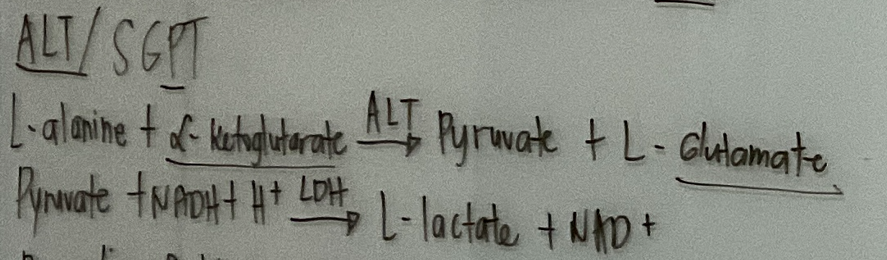 ALT/SGPT
L-alanine + α-ketoglutarate ALT→ Pyruvate + L-Glutamate
Pyruvate + NADH + H+ LDH→ L-lactate + NAD+